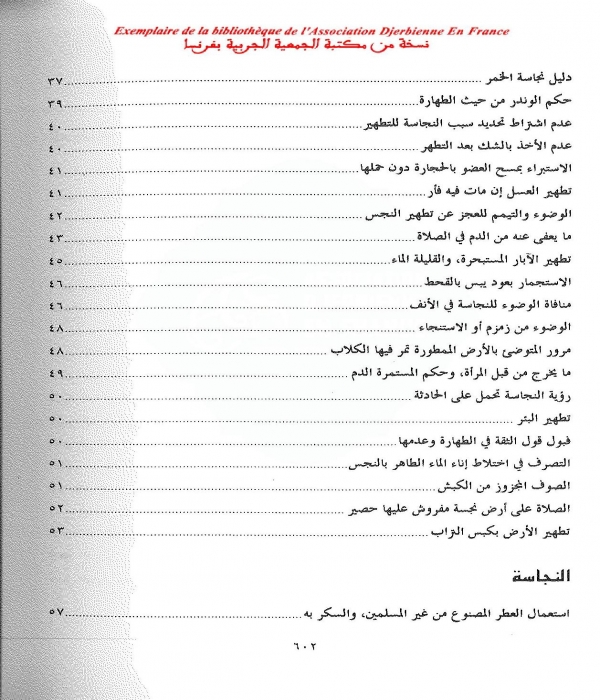 Exemplaire de la bibliothèque de l'Association Djerbienne En France
نسخة من مكتبة الجمعية الجربية بفرنسا
دليل نجاسة الخمر ٣٧
حكم الوندر من حيث الطهارة ٣٩
عدم اشتراط تحديد سبب النجاسة للتطهير ٤٠
عدم الأخذ بالشك بعد التطهر ٤٠
الاستبراء بمسح العضو بالحجارة دون حملها ٤١
تطهير العسل إن مات فيه فأر ٤١
الوضوء والتيمم للعجز عن تطهير النجس ٤٢
ما يعفى عنه من الدم في الصلاة ٤٣
تطهير الآبار المستبحرة، والقليلة الماء ٤٥
الاستجمار بعود يبس بالقحط ٤٦
منافاة الوضوء للنجاسة في الأنف ٤٦
الوضوء من زمزم أو الاستنجاء ٤٨
مرور المتوضئ بالأرض الممطورة تمر فيها الكلاب ٤٨
ما يخرج من قبل المرأة، وحكم المستمرة الدم ٤٩
رؤية النجاسة تحمل على الحادثة ٥٠
تطهير البئر ٥٠
قبول قول الثقة في الطهارة وعدمها ٥٠
التصرف في اختلاط إناء الماء الطاهر بالنجس ٥١
الصوف المجزوز من الكبش ٥١
الصلاة على أرض نجسة مفروش عليها حصير ٥٢
تطهير الأرض بكبس التراب ٥٣
النجاسة
استعمال العطر المصنوع من غير المسلمين، والسكر به ٥٧
٦٠٢